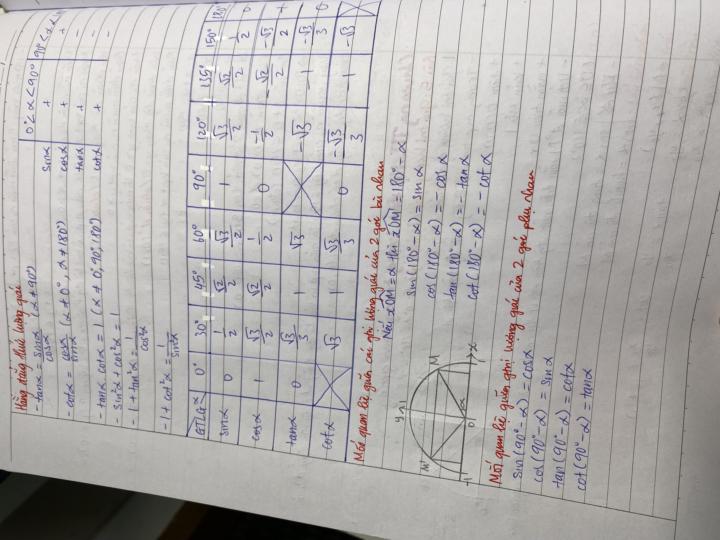 Hằng đẳng thức lượng giác
- tanα = sinα/cosα (α ≠ 90°)
- cotα = cosα/sinα (α ≠ 0°, α ≠ 180°)
- tanα cotα = 1 (α ≠ 0, 90°, 180°)
- sin²α + cos²α = 1
- 1 + tan²α = 1/cos²α
- 1 + cot²α = 1/sin²α
0° < α < 90° 90° < α <
sinα + +
cosα + -
tanα + -
cotα + -
GTLG α 0° 30° 45° 60° 90° 120° 135° 150° 180°
sinα 0 1/2 √2/2 √3/2 1 √3/2 √2/2 1/2 0
cosα 1 √3/2 √2/2 1/2 0 -1/2 -√2/2 -√3/2
tanα 0 √3/3 1 √3 -√3 -1 -√3/3 0
cotα √3 1 √3/3 0 -√3/3 -1 -√3
Mối quan hệ giữa các giá trị lượng giác của 2 góc bù nhau
Nếu xOM = α thì xOM' = 180° - α
sin(180° - α) = sinα
cos(180° - α) = -cosα
tan(180° - α) = -tanα
cot(180° - α) = -cotα
y
1
M' M
α
-1 0 1 x
Mối quan hệ giữa giá trị lượng giác của 2 góc phụ nhau
sin(90° - α) = cosα
cos(90° - α) = sinα
tan(90° - α) = cotα
cot(90° - α) = tanα